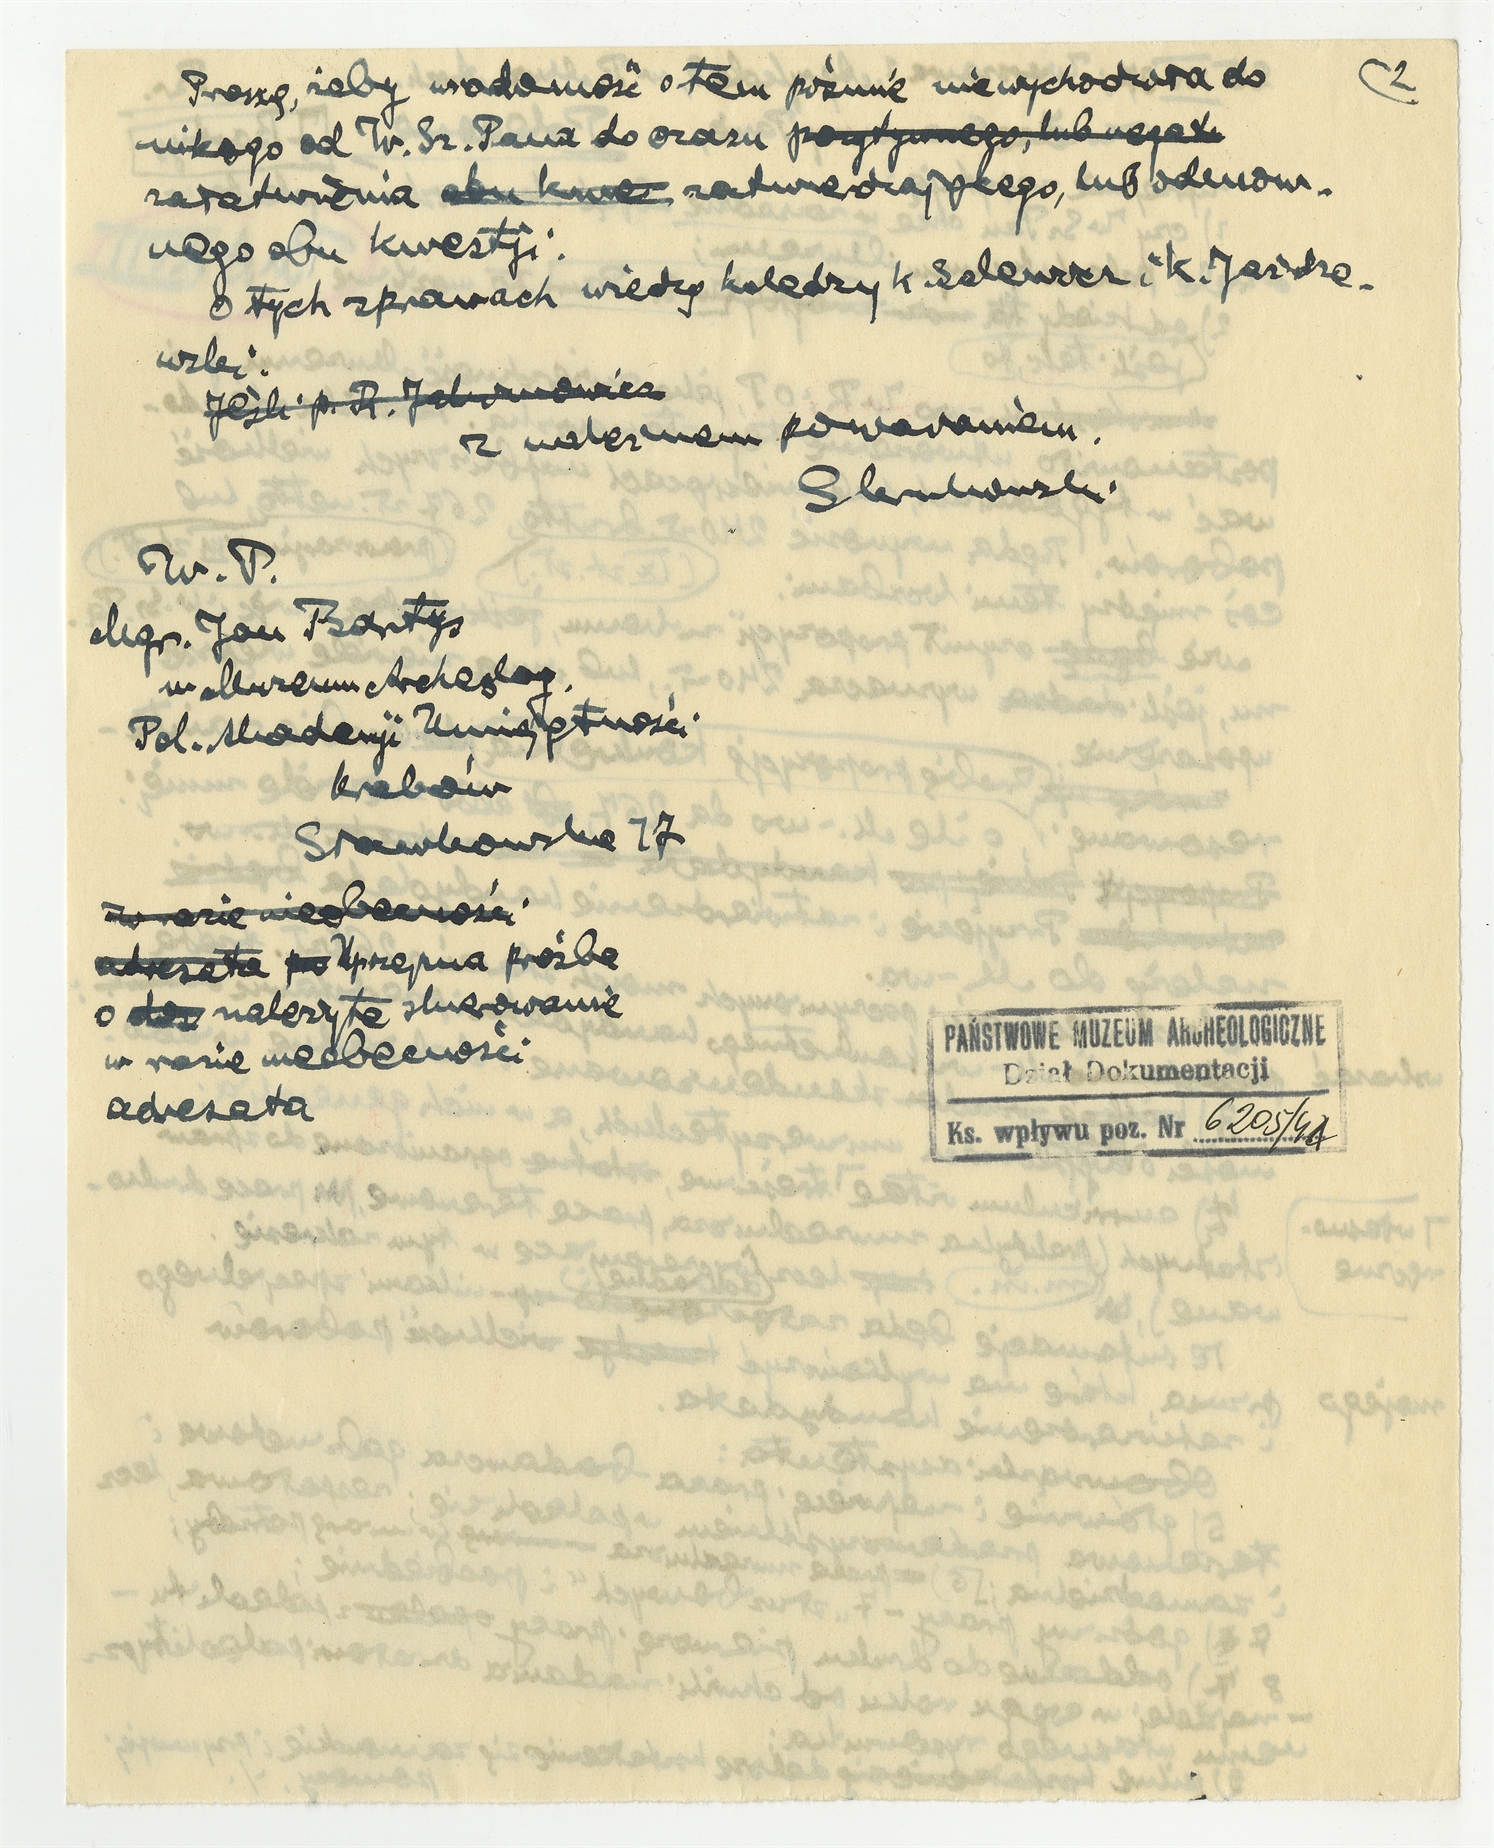 2
Proszę, żeby wiadomość o tem piśmie nie wychodziła do
nikogo od W. Sz. Pana do czasu pozytywnego, lub negat.
załatwienia obu kwes zatwierdzającego, lub odmow-
nego obu kwestji.
O tych sprawach wiedzą koledzy K. Salewicz i K. Jażdże-
wski.
Jeśli p. R. Jakimowicz
z należnem poważaniem.
W. P.
Mgr. Jan Bartys
w Muzeum Archeolog.
Pol. Akademji Umiejętności
Kraków
Sławkowska 17
w razie nieobecności
adresata po Uprzejma prośba
o należyte skierowanie
w razie nieobecności
adresata
PAŃSTWOWE MUZEUM ARCHEOLOGICZNE
Dział Dokumentacji
Ks. wpływu poz. Nr 6205/41